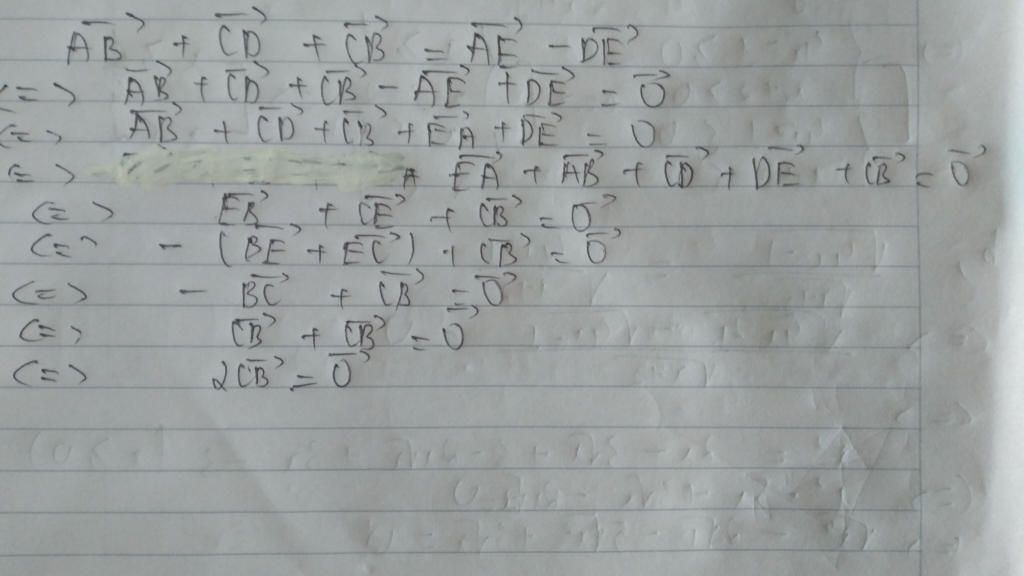 $\overrightarrow{AB} + \overrightarrow{CD} + \overrightarrow{CB} = \overrightarrow{AE} - \overrightarrow{DE}$
<=> $\overrightarrow{AB} + \overrightarrow{CD} + \overrightarrow{CB} - \overrightarrow{AE} + \overrightarrow{DE} = \overrightarrow{0}$
<=> $\overrightarrow{AB} + \overrightarrow{CD} + \overrightarrow{CB} + \overrightarrow{EA} + \overrightarrow{DE} = 0$
<=> $\overrightarrow{EA} + \overrightarrow{AB} + \overrightarrow{CD} + \overrightarrow{DE} + \overrightarrow{CB} = \overrightarrow{0}$
<=> $\overrightarrow{EB} + \overrightarrow{CE} + \overrightarrow{CB} = \overrightarrow{0}$
<=> $- (\overrightarrow{BE} + \overrightarrow{EC}) + \overrightarrow{CB} = \overrightarrow{0}$
<=> $- \overrightarrow{BC} + \overrightarrow{CB} = \overrightarrow{0}$
<=> $\overrightarrow{CB} + \overrightarrow{CB} = \overrightarrow{0}$
<=> $2\overrightarrow{CB} = \overrightarrow{0}$